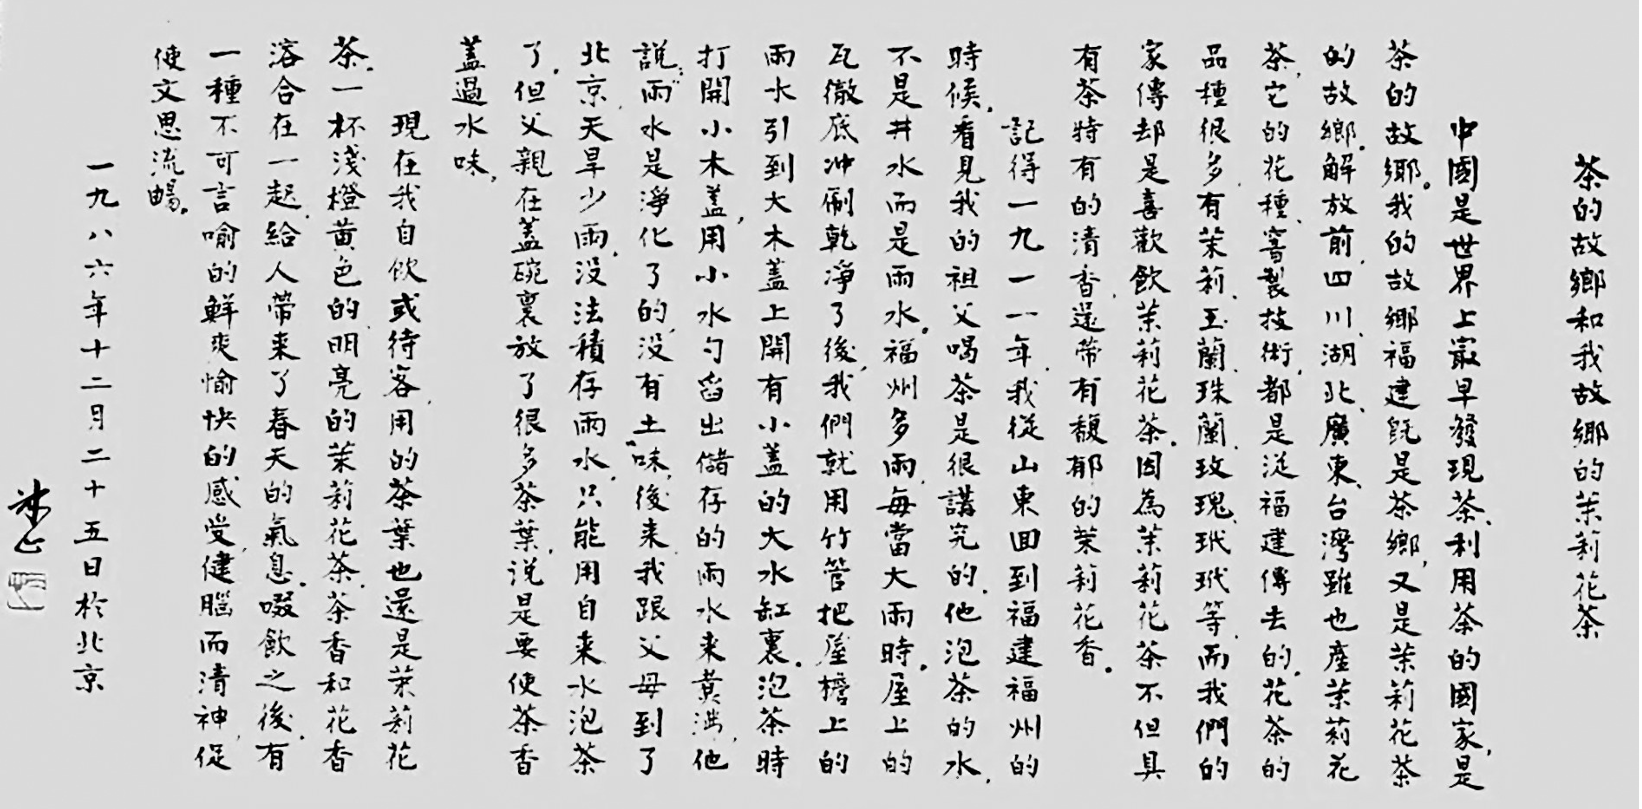 茶的故鄉和我故鄉的茉莉花茶
中國是世界上最早發現茶、利用茶的國家,是
茶的故鄉。我的故鄉福建既是茶鄉,又是茉莉花茶
的故鄉。解放前,四川、湖北、廣東、台灣雖也產茉莉花
茶,它的花種、窨製技術,都是從福建傳去的。花茶的
品種很多,有茉莉、玉蘭、珠蘭、玫瑰、玳玳等,而我們的
家傳却是喜歡飲茉莉花茶。因為茉莉花茶不但具
有茶特有的清香,還帶有馥郁的茉莉花香。
記得一九一一年,我從山東回到福建福州的
時候,看見我的祖父喝茶是很講究的。他泡茶的水,
不是井水而是雨水。福州多雨,每當大雨時,屋上的
瓦徹底冲刷乾凈了後,我們就用竹管把屋檐上的
雨水引到大木蓋上開有小蓋的大水缸裏。泡茶時
打開小木蓋,用小水勺舀出儲存的雨水來煮沸,他
說:“雨水是凈化了的,没有土味”。後来我跟父母到了
北京,天旱少雨,没法積存雨水,只能用自来水泡茶
了,但父親在蓋碗裏放了很多茶葉,说是要使茶香
蓋過水味。
現在我自飲或待客,用的茶葉也還是茉莉花
茶,一杯淺橙黃色的,明亮的茉莉花茶,茶香和花香
溶合在一起,給人帶來了春天的氣息。啜飲之後,有
一種不可言喻的鮮爽愉快的感受,健腦而清神,促
使文思流暢。
一九八六年十二月二十五日於北京
冰心